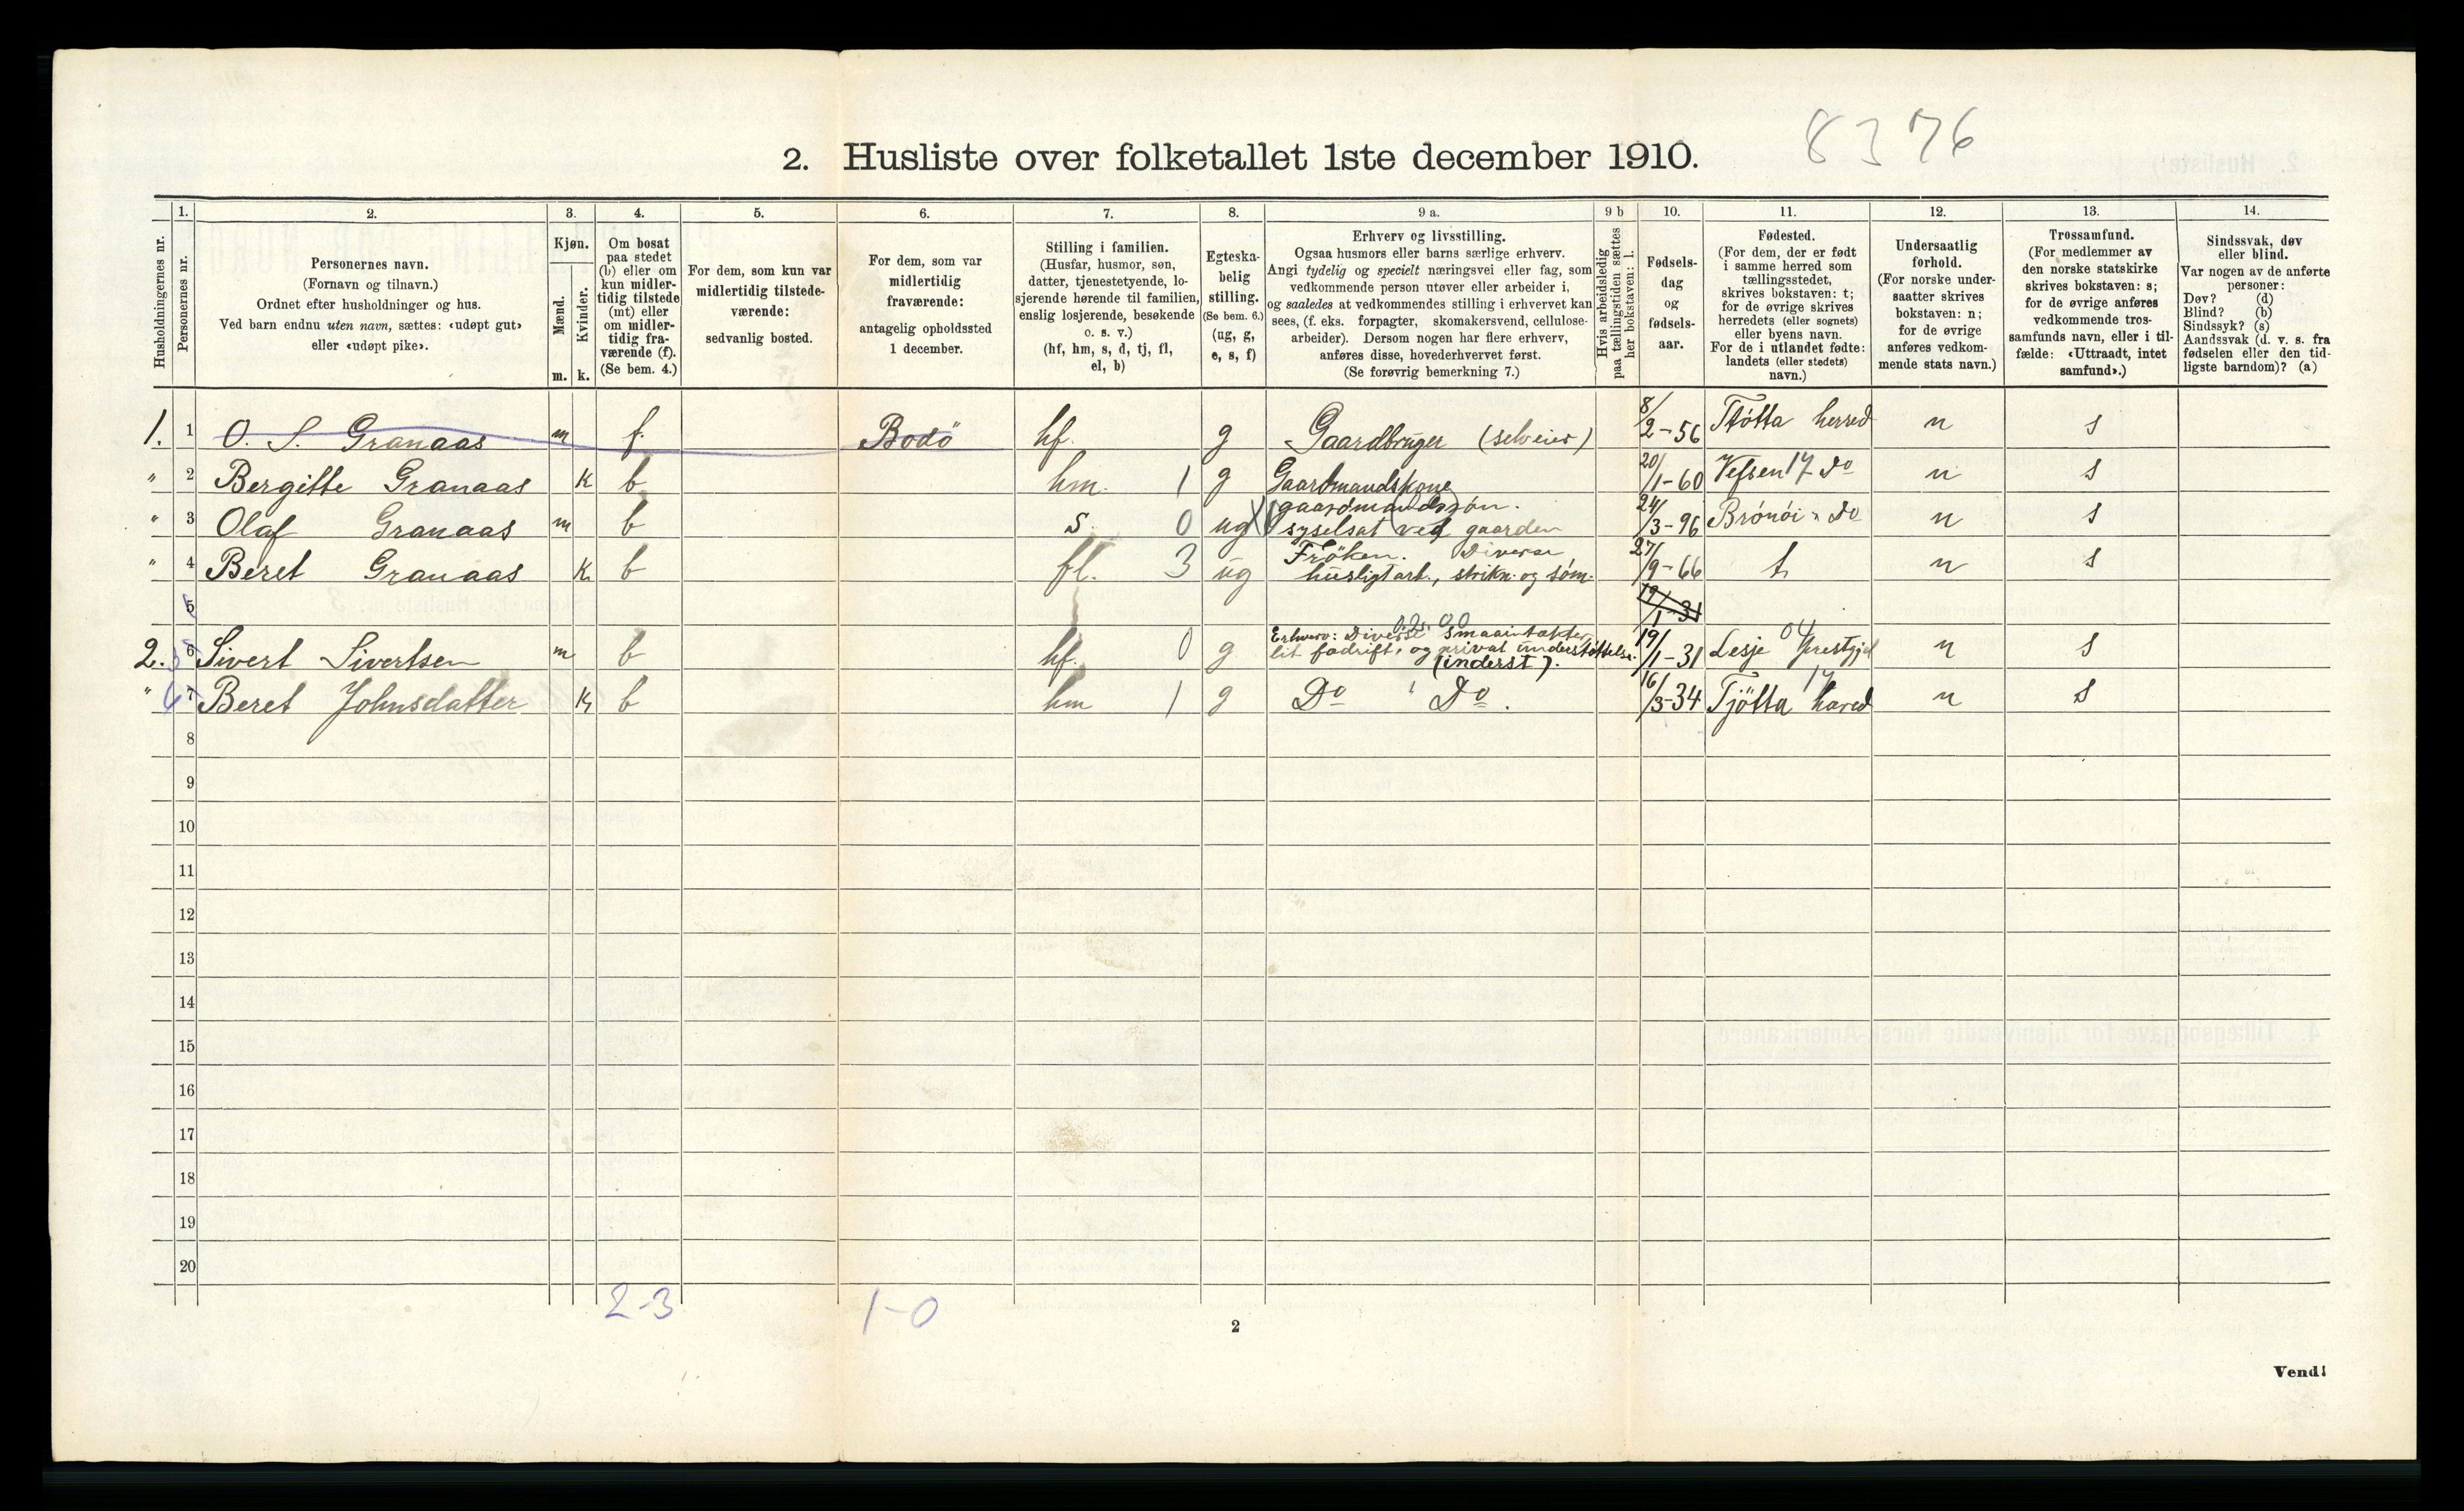 8376
2. Husliste over folketallet 1ste december 1910.
Husholdningernes nr.
1.
Personernes nr.
2.
Personernes navn.
(Fornavn og tilnavn.)
Ordnet efter husholdninger og hus.
Ved barn endnu uten navn, sættes: «udøpt gut»
eller «udøpt pike».
3.
Kjøn.
Mænd.
Kvinder.
m. k.
4.
Om bosat
paa stedet
(b) eller om
kun midler-
tidig tilstede
(mt) eller
om midler-
tidig fra-
værende (f).
(Se bem. 4.)
5.
For dem, som kun var
midlertidig tilstede-
værende:
sedvanlig bosted.
6.
For dem, som var
midlertidig
fraværende:
antagelig opholdssted
1 december.
7.
Stilling i familien.
(Husfar, husmor, søn,
datter, tjenestetyende, lo-
sjerende hørende til familien,
enslig losjerende, besøkende
o. s. v.)
(hf, hm, s, d, tj, fl,
el, b)
8.
Egteska-
belig
stilling.
(Se bem. 6.)
(ug, g,
e, s, f)
9 a.
Erhverv og livsstilling.
Ogsaa husmors eller barns særlige erhverv.
Angi tydelig og specielt næringsvei eller fag, som
vedkommende person utøver eller arbeider i,
og saaledes at vedkommendes stilling i erhvervet kan
sees, (f. eks. forpagter, skomakersvend, cellulose-
arbeider). Dersom nogen har flere erhverv,
anføres disse, hovederhvervet først.
(Se forøvrig bemerkning 7.)
9 b
Hvis arbeidsledig
paa tællingstiden sættes
her bokstaven: l.
10.
Fødsels-
dag
og
fødsels-
aar.
11.
Fødested.
(For dem, der er født
i samme herred som
tællingsstedet,
skrives bokstaven: t;
for de øvrige skrives
herredets (eller sognets)
eller byens navn.
For de i utlandet fødte:
landets (eller stedets)
navn.)
12.
Undersaatlig
forhold.
(For norske under-
saatter skrives
bokstaven: n;
for de øvrige
anføres vedkom-
mende stats navn.)
13.
Trossamfund.
(For medlemmer av
den norske statskirke
skrives bokstaven: s;
for de øvrige anføres
vedkommende tros-
samfunds navn, eller i til-
fælde: «Uttraadt, intet
samfund».)
14.
Sindssvak, døv
eller blind.
Var nogen av de anførte
personer:
Døv? (d)
Blind? (b)
Sindssyk? (s)
Aandssvak (d. v. s. fra
fødselen eller den tid-
ligste barndom)? (a)
1. 1 O. S. Granaas m f. Bodö hf. g Gaardbruger (selveier) 8/2-56 Tfötta herred n s
" 2 Bergitte Granaas K b hm. 1 g Gaardmandskone 20/1-60 Vefsen 17 Do n s
" 3 Olaf Granaas m b s. 0 ug gaardmandssøn.
syselsat ved gaarden 24/3-96 Brönöi " Do n s
" 4 Beret Granaas K b fl. 3 ug Frøken. Diverse
husligt arb., strikn. og søm. 27/9-66 t n s
5 19/1-31
2. 6 Sivert Sivertsen m b hf. 0 g Erhverv: Diverse smaaintækter,
lit fædrift, og privat understøttelse.
(inderst). 19/1-31 Lesje 04 Prestgjd n s
" 7 Beret Johnsdatter K b hm 1 g Do " Do. 16/3-34 Tjötta 17 hered n s
8
9
10
11
12
13
14
15
16
17
18
19
20
2-3 1-0
2
Vend!